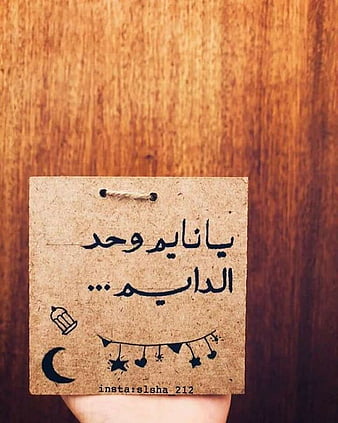 يا نايم وحد
الدايم ...
insta:slsha_212